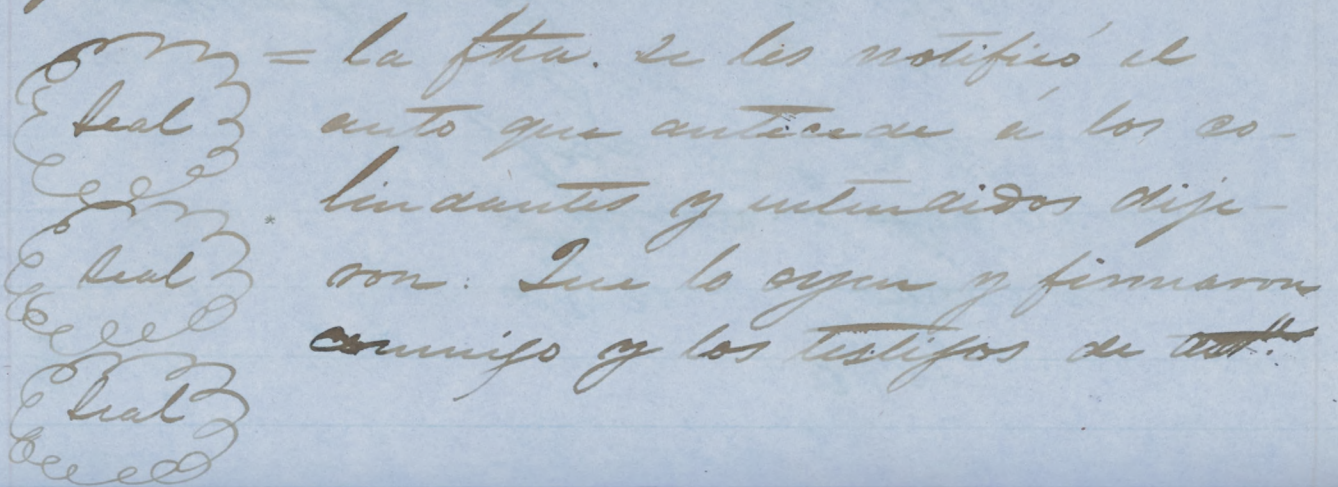 Seal
Seal
Seal
= la fha. se les notificó el
auto que antecede á los co-
lindantes y entendidos dije-
ron: Que lo oyen y firmaron
conmigo y los testigos de